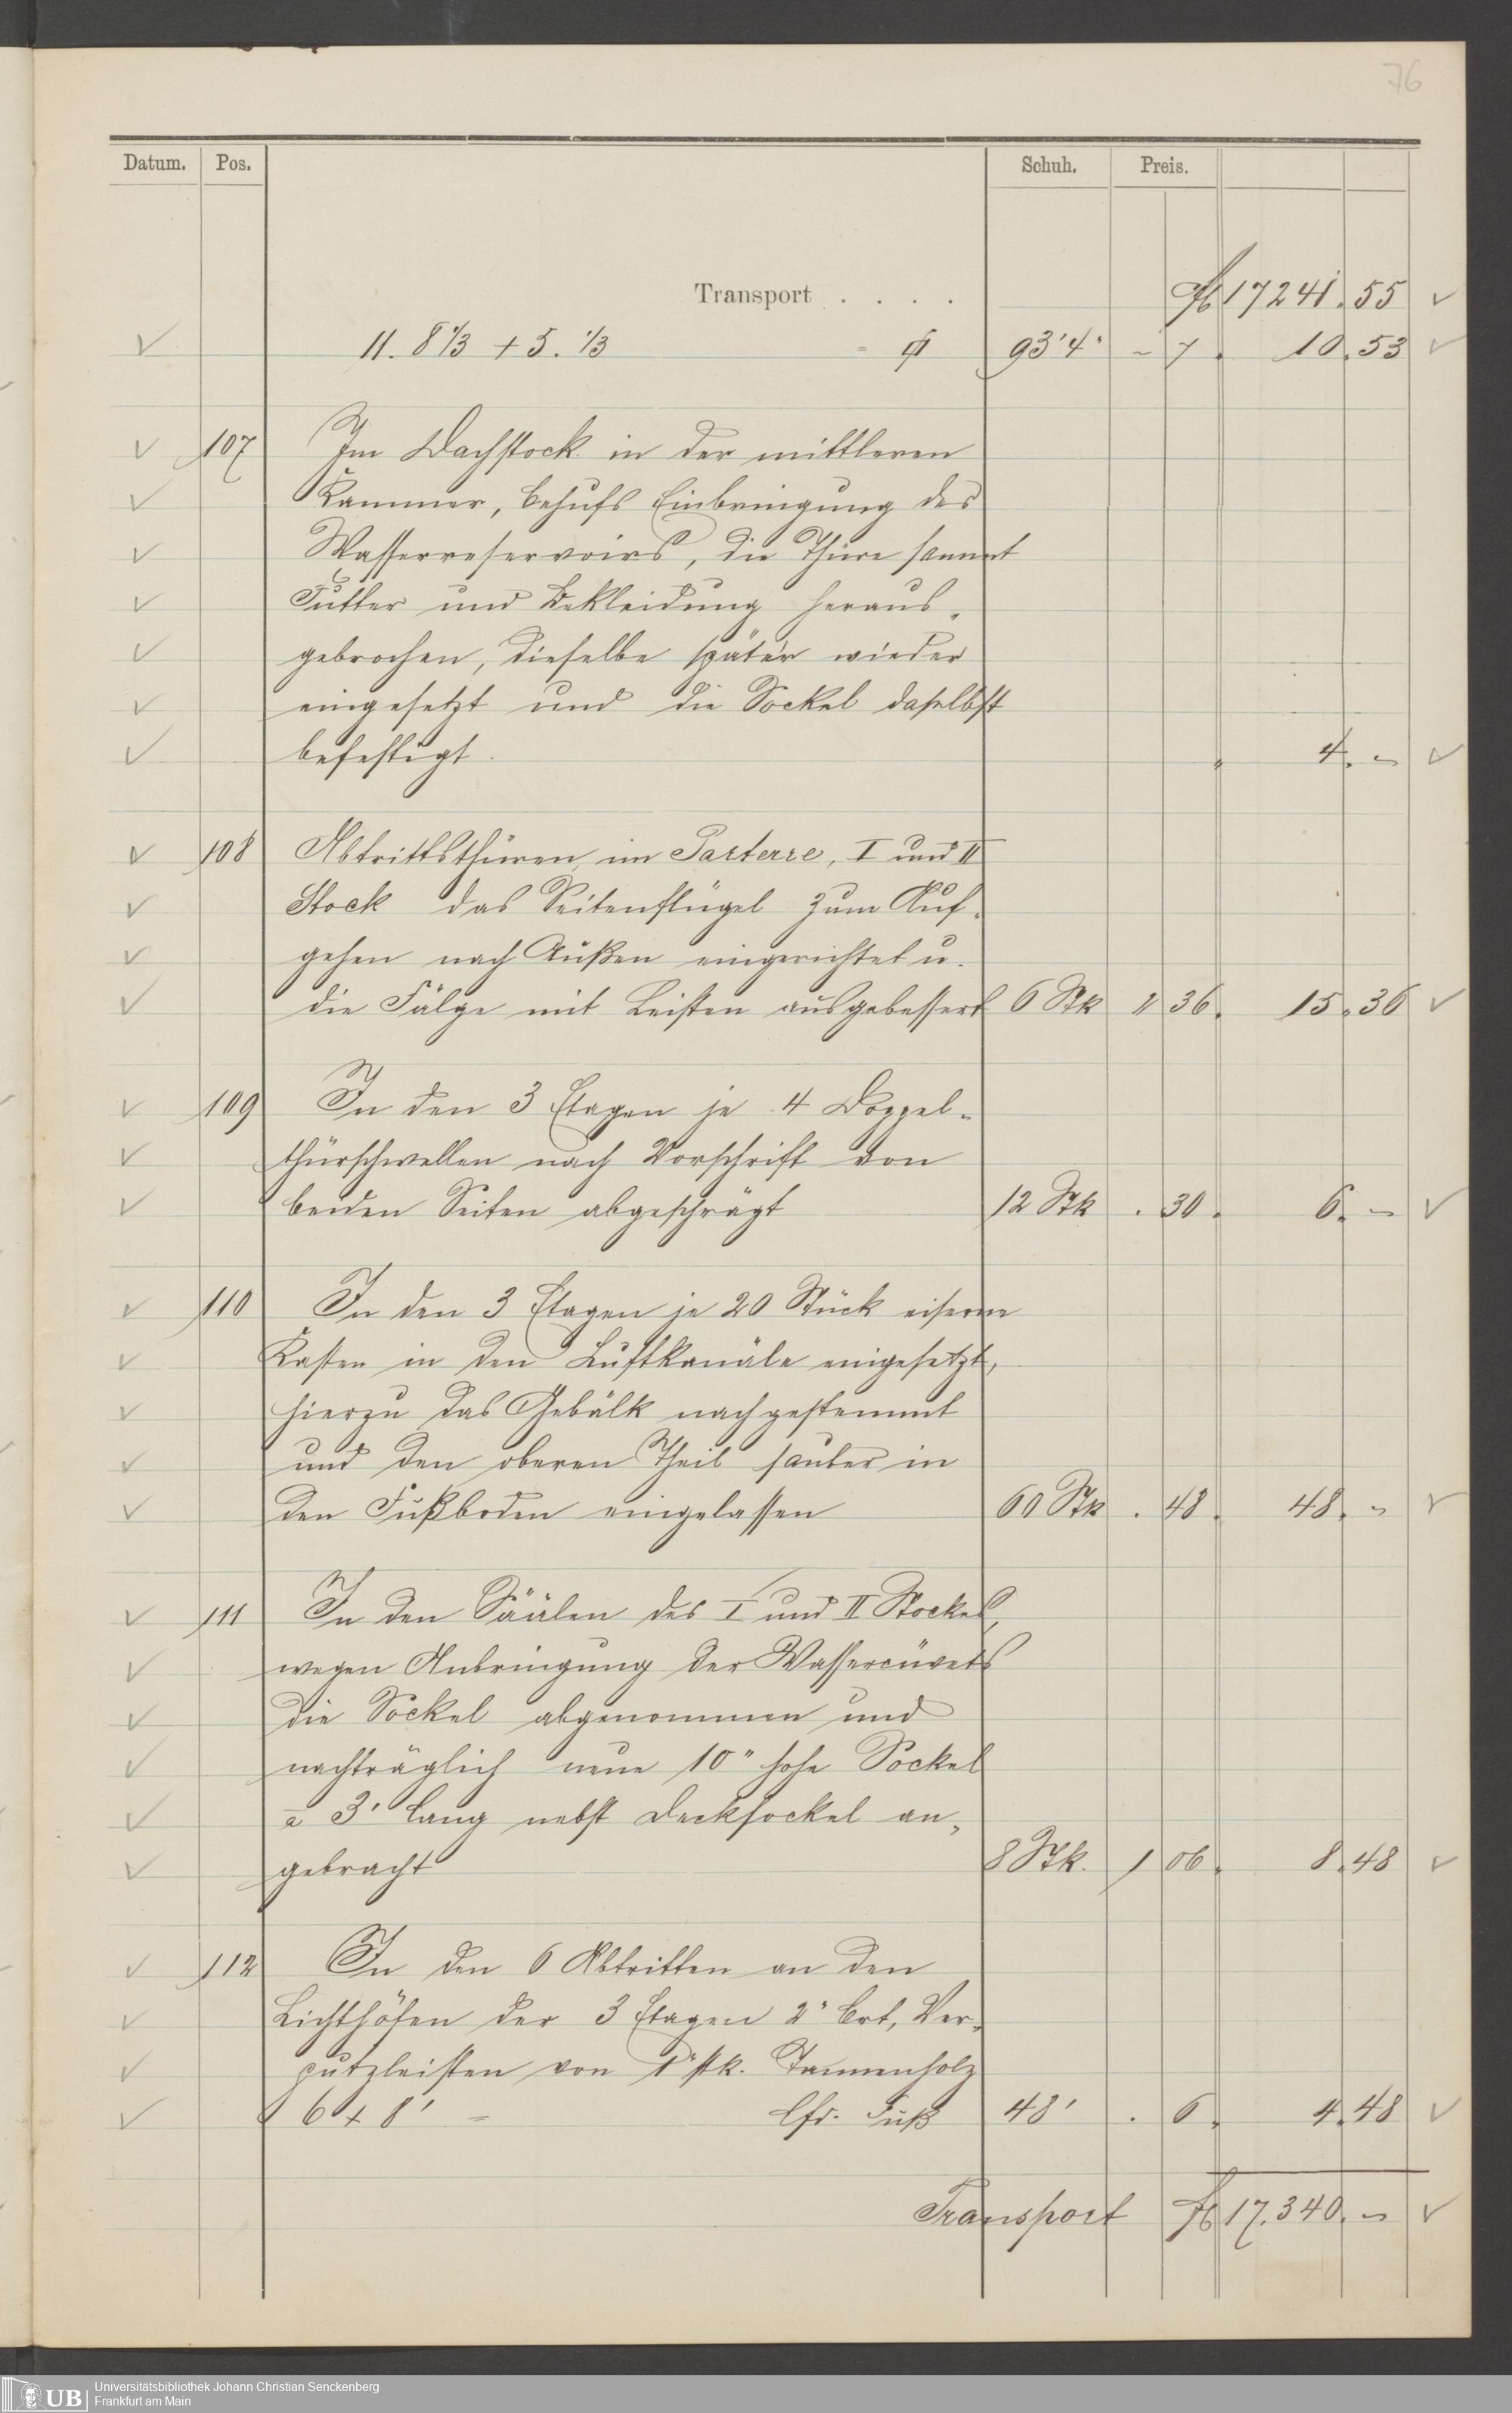 76
Datum. Pos. Schuh. Preis.
Transport . . . . fl 17241. 55
11. 8 1/3 + 5. 1/3 = 93'4" - 7. 10. 53
107 Im Dachstock in der mittleren
Kammer, behufs Einbringung des
Wasserreservoirs, die Thüre sammt
Futter und Bekleidung heraus-
gebrochen, dieselbe später wieder
eingesetzt und die Sockel daselbst
befestigt. " 4. -
108 Abtrittsthüren im Parterre, I und II
Stock das Seitenflügel zum Auf-
gehen nach Außen eingerichtet u.
die Fälze mit Leisten ausgebessert 6 Stk 2 36. 15. 36
109 In den 3 Etagen je 4 Doppel-
thürschwellen nach Vorschrift von
beiden Seiten abgeschrägt 12 Stk . 30. 6. -
110 In den 3 Etagen je 20 Stück eiserne
Kasten in den Luftkanäle eingesetzt,
hierzu das Gebälk nachgestemmt
und den oberen Theil sauber in
den Fußboden eingelassen 60 Stk . 48. 48. -
111 In den Säälen des I und II Stockes,
wegen Anbringung der Wassercüvets
die Sockel abgenommen und
nachträglich neue 10" hohe Sockel
a 3' lang nebst Decksockel an-
gebracht 8 Stk. 1 06. 8. 48
112 In den 6 Abtritten an den
Lichthöfen der 3 Etagen 2" brt. Ver-
putzleisten von 1" stk. Tannenholz
6 + 8' = lfd. Fuß 48' . 6. 4. 48
Transport fl 17.340. -
UB Universitätsbibliothek Johann Christian Senckenberg
Frankfurt am Main